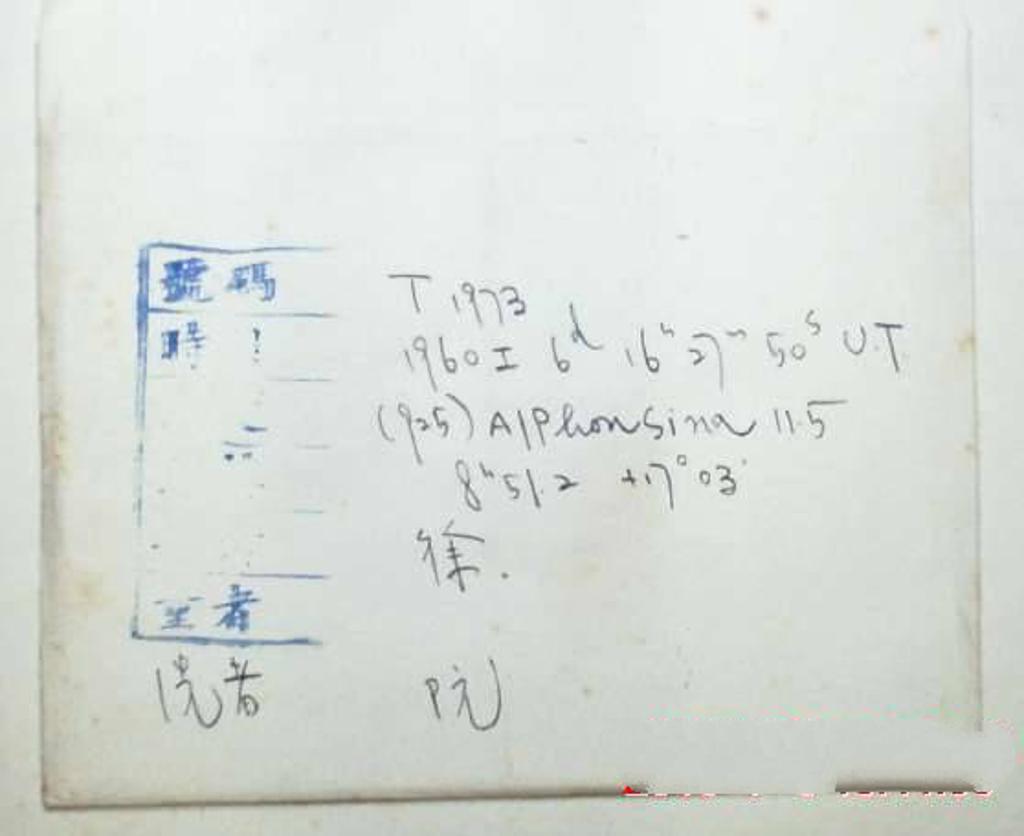 號碼
T 1973
時
1960 I 6ᵈ 16ʰ 27ᵐ 50ˢ U.T
(925) Alphonsina 11.5
8ʰ51.2 +17°03'
徐.
者
者
阮